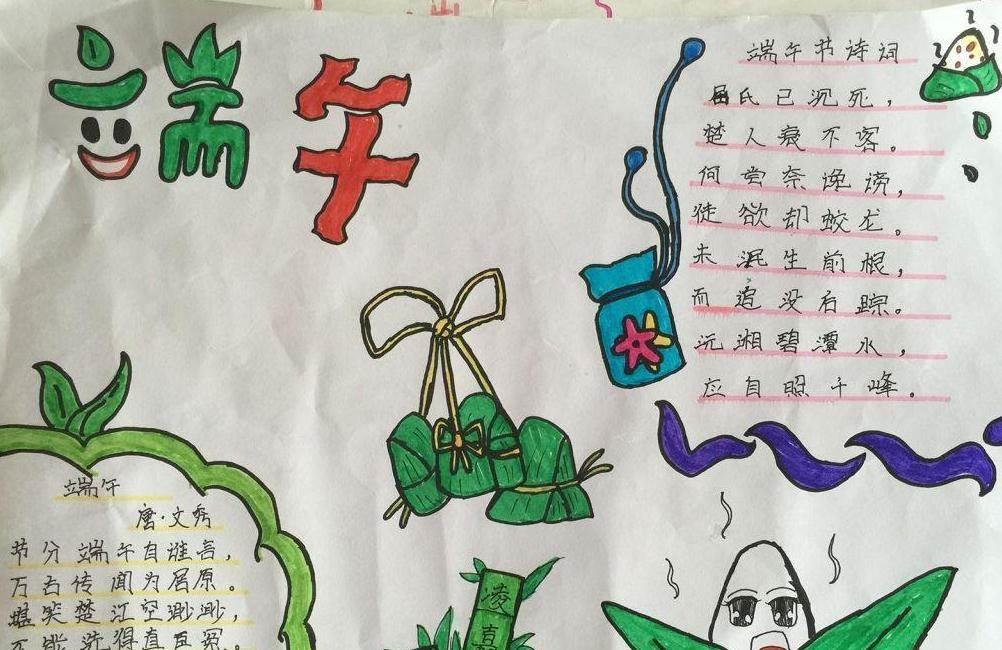 端午
端午节诗词
屈氏已沉死，
楚人衰不客。
何尝奈谗谤，
徒欲却蛟龙。
未泯生前根，
而追没后踪。
沅湘碧潭水，
应自照千峰。
端午
唐·文秀
节分端午自谁言，
万古传闻为屈原。
堪笑楚江空渺渺，
不能洗得直臣冤。
凌